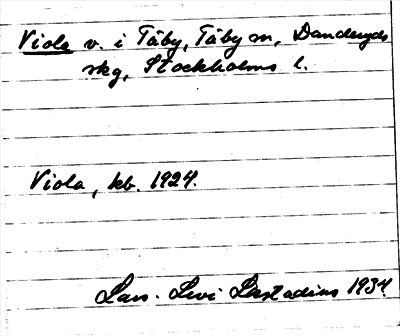 Viola v. i Täby, Täby sn, Danderyds
skg, Stockholms l.
Viola, kb. 1924.
Lars-Levi Læstadius 1934.